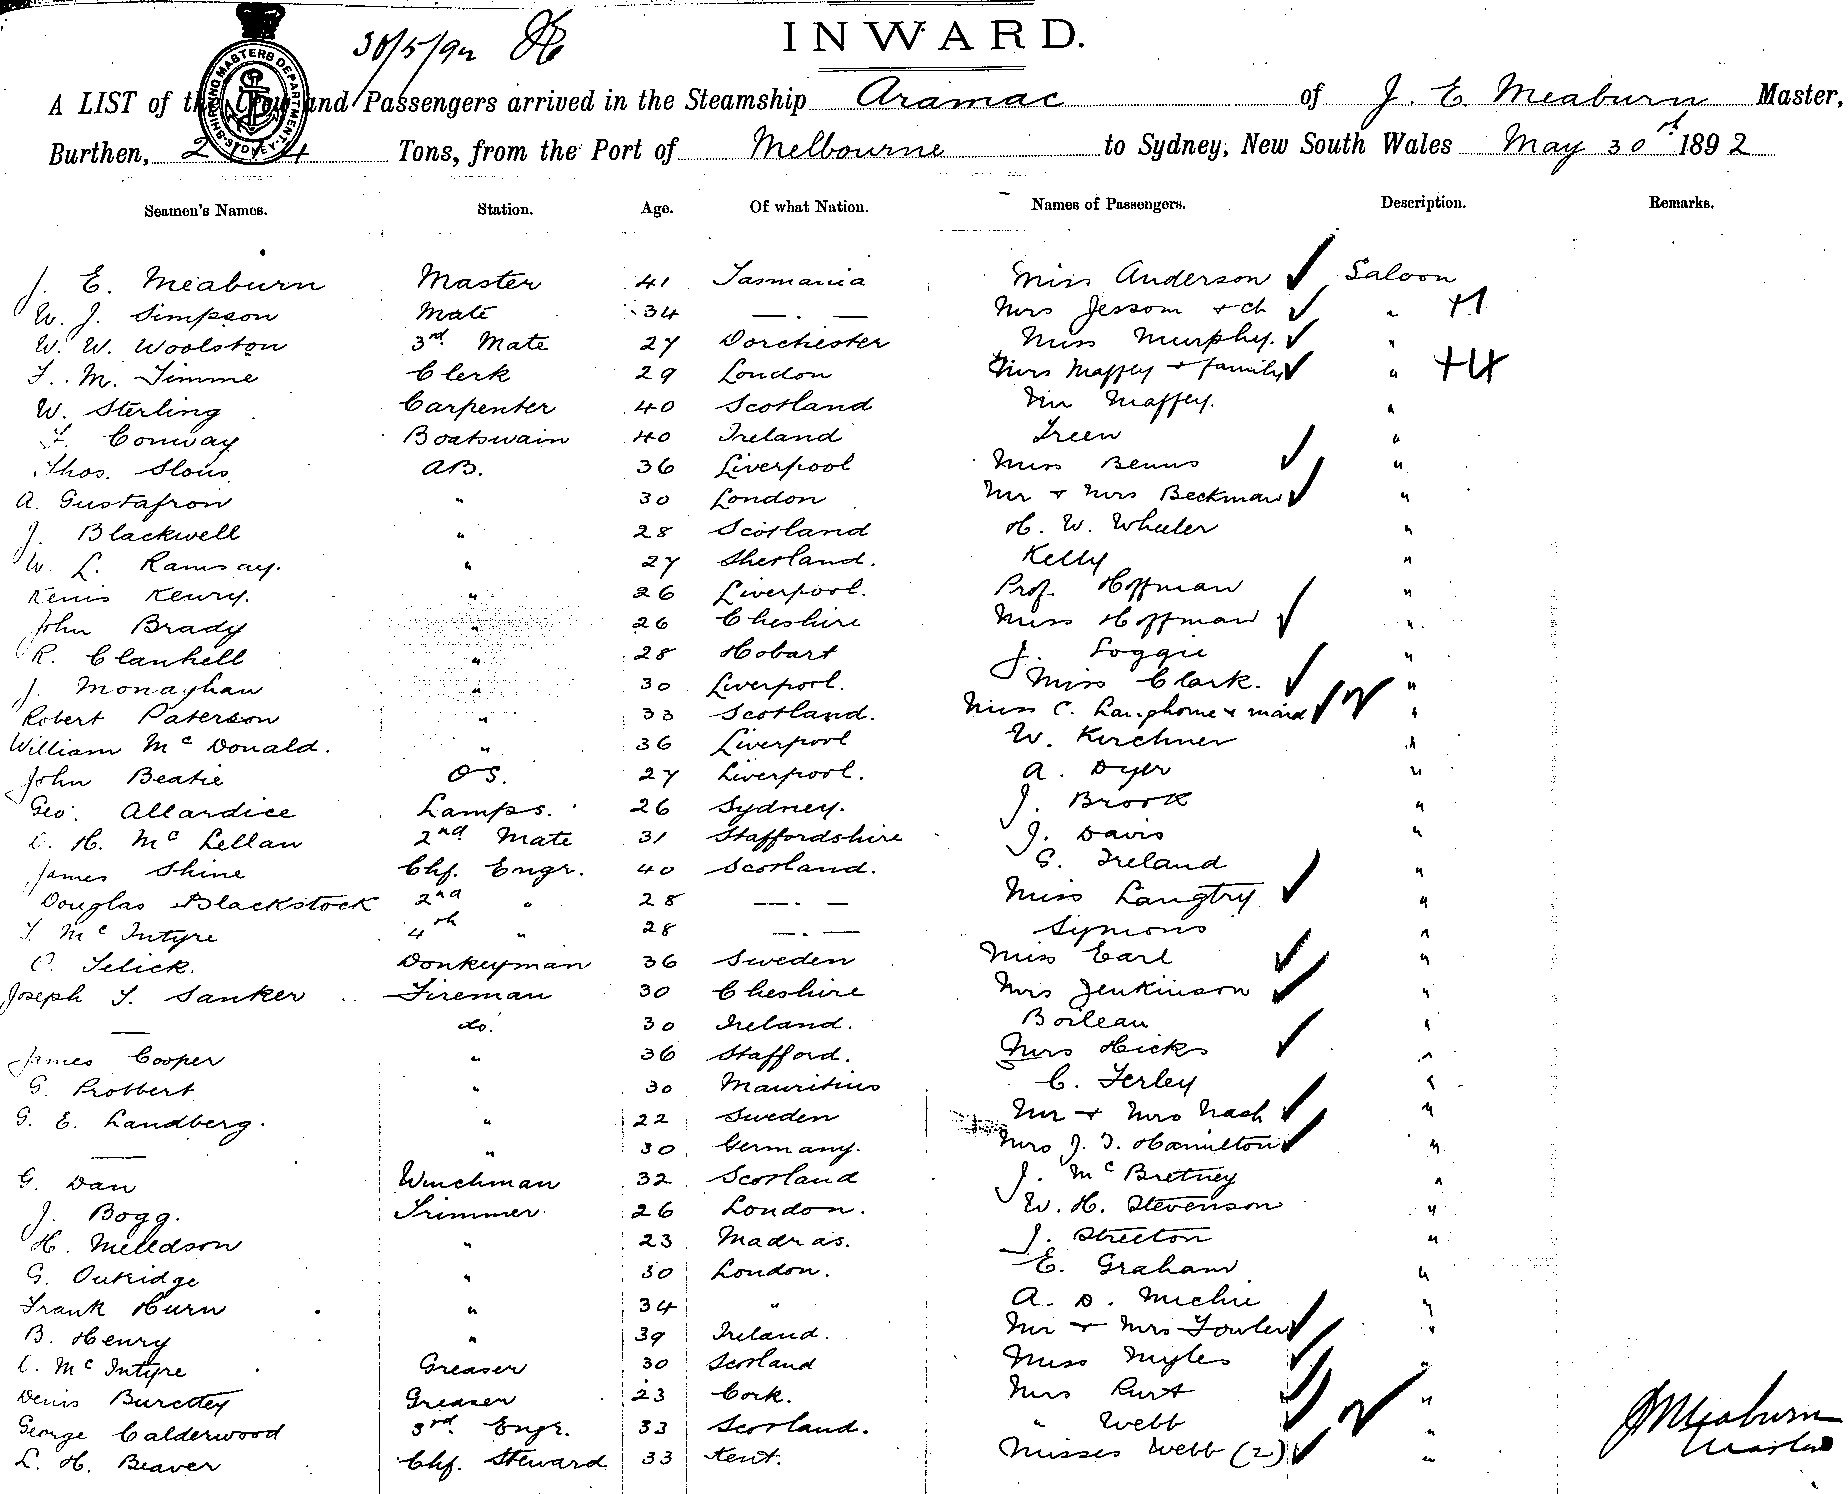 INWARD.
30/5/92
A LIST of the Crew and Passengers arrived in the Steamship Aramac of J. E. Meaburn Master,
Burthen, 2114 Tons, from the Port of Melbourne to Sydney, New South Wales May 30th 1892
Seamen's Names. Station. Age. Of what Nation. Names of Passengers. Description. Remarks.
J. E. Meaburn Master 41 Tasmania Miss Anderson ✓ Saloon
W. J. Simpson Mate 34 — . — Mrs Jessom + ch ✓ " +1
W. W. Woolston 3rd Mate 27 Dorchester Miss Murphy. ✓ "
F. M. Timme Clerk 29 London Mrs Maffey + family ✓ " +4
W. Sterling Carpenter 40 Scotland Mr Maffey. "
F. Conway Boatswain 40 Ireland Treen "
Thos. Slous AB. 36 Liverpool Miss Benns ✓ "
A. Gustafron " 30 London Mr + Mrs Beckman ✓ "
J. Blackwell " 28 Scotland H. W. Wheeler "
W. L. Ramsay. " 27 Shetland. Kelly "
Kenry. " 26 Liverpool. Prof. Hoffman "
John Brady " 26 Cheshire Miss Hoffman ✓ "
R. Clankell " 28 Hobart J. Loggie "
J. Monaghan " 30 Liverpool. Miss Clark. ✓ "
Robert Paterson " 33 Scotland. Miss C. Langhorne + maid ✓ "
William Mc Donald. " 36 Liverpool W. Kirchner "
John Beatie OS. 27 Liverpool. A. Dyer "
Geo. Allardice Lamps. 26 Sydney. J. Brook "
H. Mc Lellan 2nd Mate 31 Staffordshire J. Davis "
James Shine Chf. Engr. 40 Scotland. G. Ireland "
Douglas Blackstock 2nd " 28 — . — Miss Langtry ✓ "
T. Mc Intyre 4th " 28 — . — Symons "
C. Selick. Donkeyman 36 Sweden Miss Earl ✓ "
Joseph T. Sanker Fireman 30 Cheshire Mrs Jenkinson ✓ "
— do. 30 Ireland. Boileau "
James Cooper " 36 Stafford. Mrs Hicks ✓ "
G. Probbert " 30 Mauritius C. Ferley "
G. E. Landberg. " 22 Sweden Mr + Mrs Nash ✓ "
— " 30 Germany. Mrs J. T. Hamilton ✓ "
G. Dan Winchman 32 Scotland J. Mc Bretney "
J. Bogg. Trimmer 26 London. W. H. Stevenson "
H. Melldson " 23 Madras. J. Streeton "
G. Outridge " 30 London. E. Graham "
Frank Hurn " 34 " A. D. Michie "
B. Henry " 39 Ireland. Mr + Mrs Fowler ✓ "
Mc Intyre Greaser 30 Scotland Miss Myles ✓ "
Denis Burettey Greaser 23 Cork. Mrs Purt ✓ "
George Calderwood 3rd Engr. 33 Scotland. " Webb ✓ "
L. H. Beaver Chf. Steward 33 Kent. Misses Webb (2) ✓ "
J E Meaburn
Master